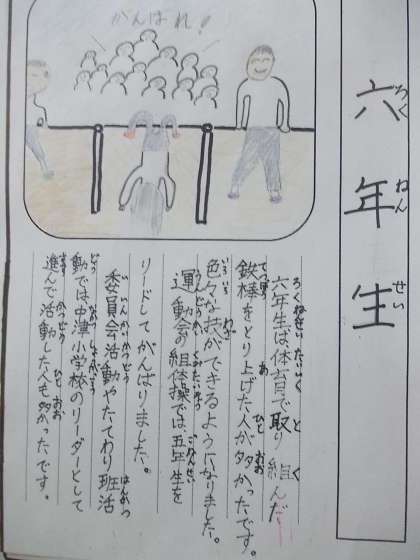 六年生
ろくねんせい
がんばれ!
六年生は体育で取り組んだ
鉄棒をとり上げた人が多かったです。
色々な技ができるようになりました。
運動会の組体操では、五年生を
リードしてがんばりました。
委員会活動やたてわり班活
動では中津小学校のリーダーとして
進んで活動した人も多かったです。